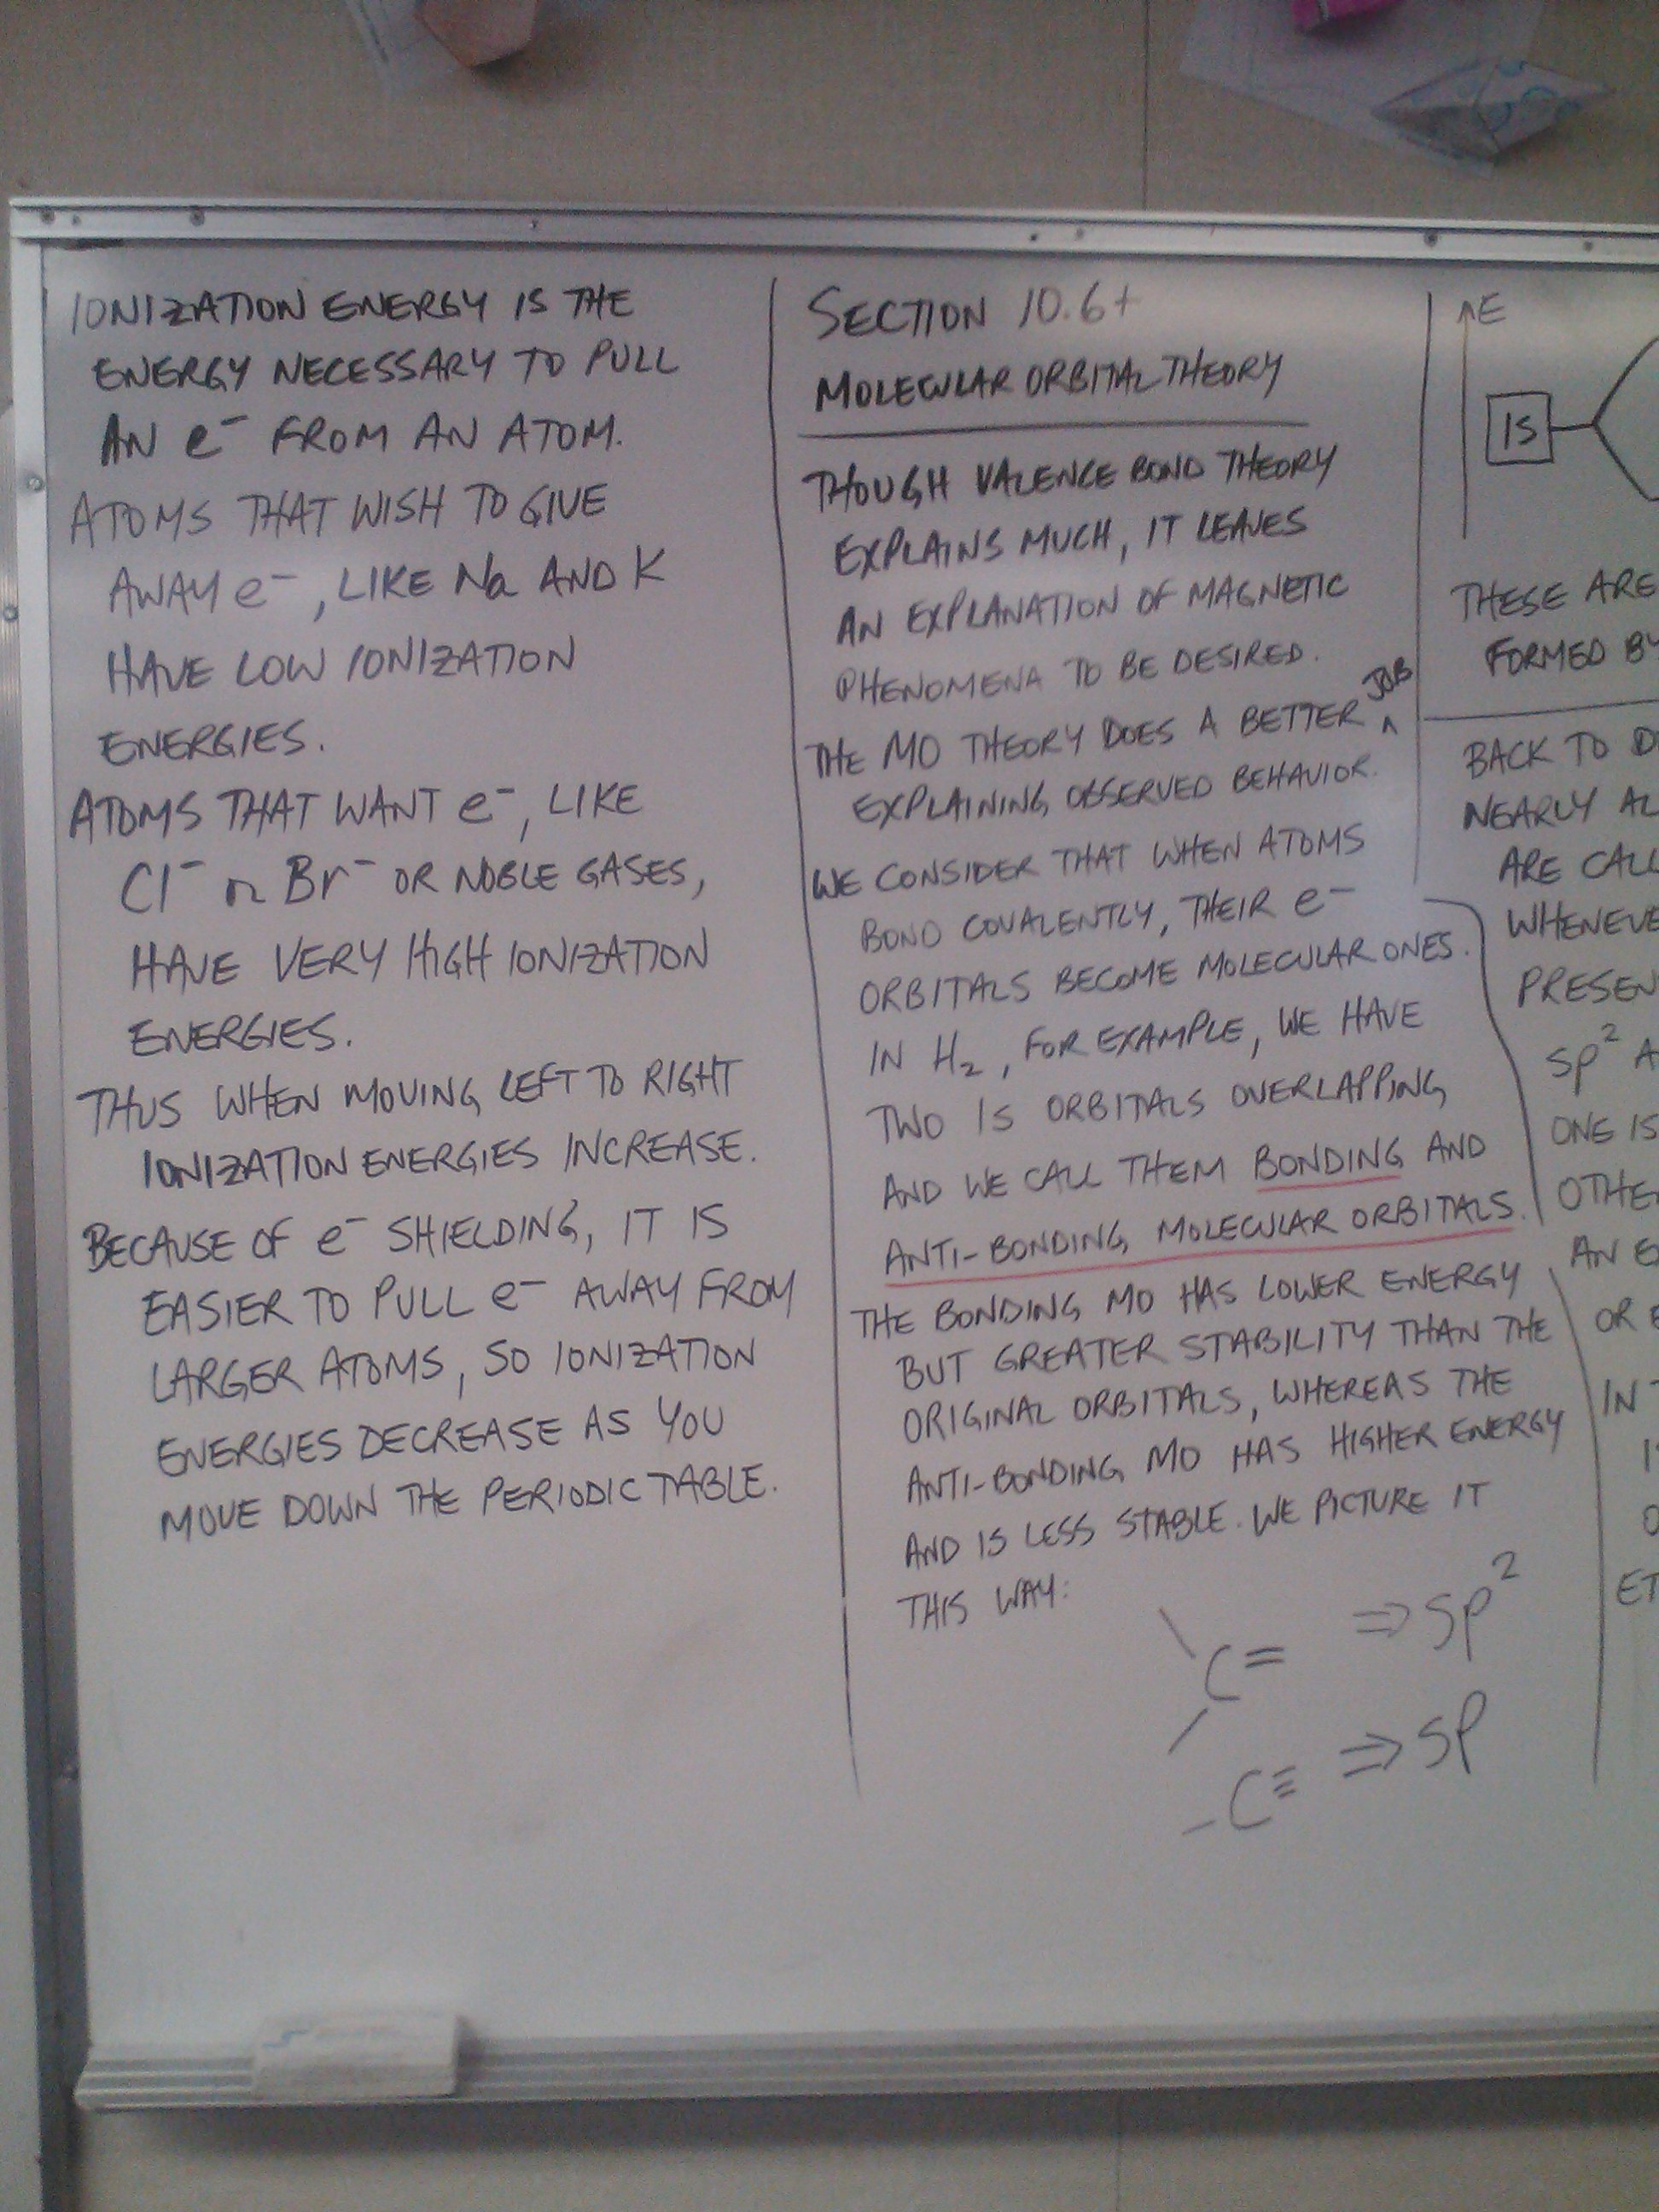 IONIZATION ENERGY IS THE
ENERGY NECESSARY TO PULL
AN e⁻ FROM AN ATOM.
ATOMS THAT WISH TO GIVE
AWAY e⁻, LIKE Na AND K
HAVE LOW IONIZATION
ENERGIES.
ATOMS THAT WANT e⁻, LIKE
Cl⁻ or Br⁻ OR NOBLE GASES,
HAVE VERY HIGH IONIZATION
ENERGIES.
THUS WHEN MOVING LEFT TO RIGHT
IONIZATION ENERGIES INCREASE.
BECAUSE OF e⁻ SHIELDING, IT IS
EASIER TO PULL e⁻ AWAY FROM
LARGER ATOMS, SO IONIZATION
ENERGIES DECREASE AS YOU
MOVE DOWN THE PERIODIC TABLE.
SECTION 10.6+
MOLECULAR ORBITAL THEORY
THOUGH VALENCE BOND THEORY
EXPLAINS MUCH, IT LEAVES
AN EXPLANATION OF MAGNETIC
PHENOMENA TO BE DESIRED.
THE MO THEORY DOES A BETTER ^ JOB
EXPLAINING OBSERVED BEHAVIOR.
WE CONSIDER THAT WHEN ATOMS
BOND COVALENTLY, THEIR e⁻
ORBITALS BECOME MOLECULAR ONES.
IN H₂, FOR EXAMPLE, WE HAVE
TWO 1S ORBITALS OVERLAPPING
AND WE CALL THEM BONDING AND
ANTI-BONDING MOLECULAR ORBITALS.
THE BONDING MO HAS LOWER ENERGY
BUT GREATER STABILITY THAN THE
ORIGINAL ORBITALS, WHEREAS THE
ANTI-BONDING MO HAS HIGHER ENERGY
AND IS LESS STABLE. WE PICTURE IT
THIS WAY:
C= ⇒ SP²
-C≡ ⇒ SP
↑E
1S
THESE ARE
FORMED BY
BACK TO
NEARLY
ARE
SP²
ONE IS
AN
OR
IN